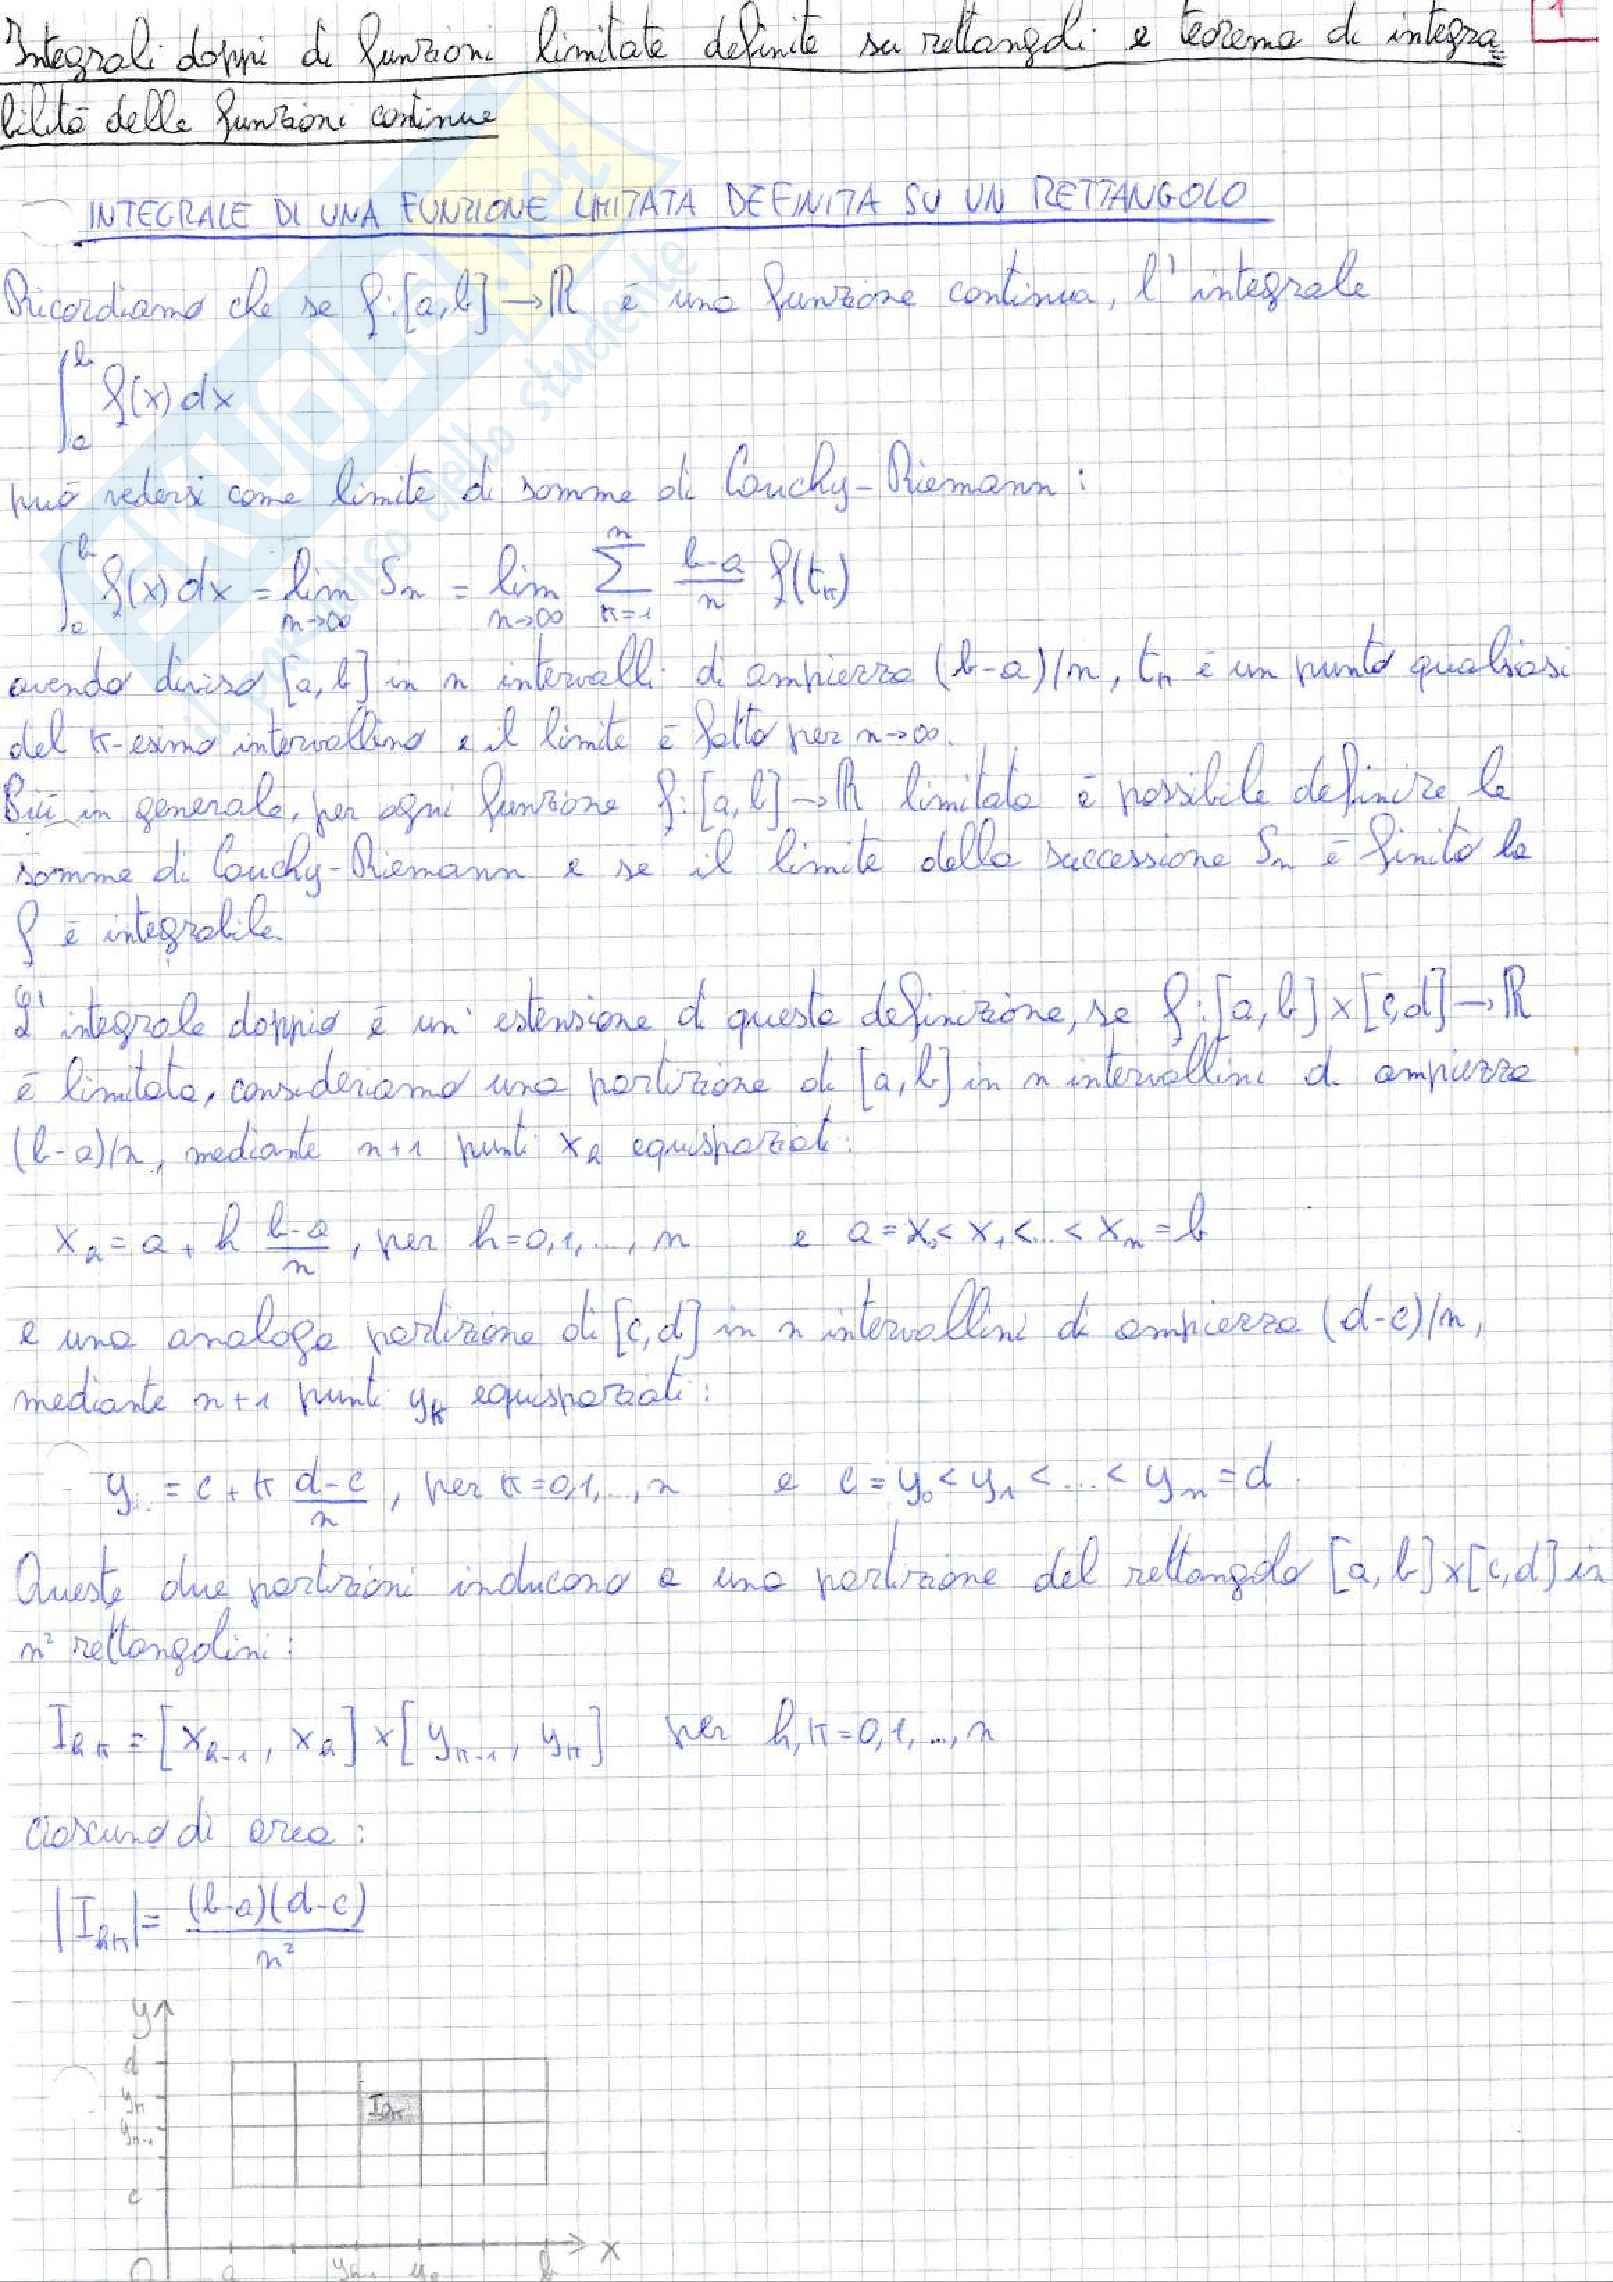 1
Integrali doppi di funzioni limitate definite su rettangoli e teorema di integra
bilità delle funzioni continue
INTEGRALE DI UNA FUNZIONE LIMITATA DEFINITA SU UN RETTANGOLO
Ricordiamo che se f:[a,b]→ℝ è una funzione continua, l'integrale
∫_a^b f(x)dx
può vedersi come limite di somme di Cauchy-Riemann:
∫_a^b f(x)dx = lim_{n→∞} S_n = lim_{n→∞} ∑_{k=1}^{n} (b-a)/n f(t_k)
avendo diviso [a,b] in n intervalli di ampiezza (b-a)/n, t_k è un punto qualsiasi
del k-esimo intervallino e il limite è fatto per n→∞.
Più in generale, per ogni funzione f:[a,b]→ℝ limitata è possibile definire le
somme di Cauchy-Riemann e se il limite della successione S_n è finito la
f è integrabile.
L'integrale doppio è un'estensione di questa definizione, se f:[a,b]×[c,d]→ℝ
è limitata, consideriamo una partizione di [a,b] in n intervallini di ampiezza
(b-a)/n, mediante n+1 punti x_h equispaziati:
x_h = a + h (b-a)/n, per h=0,1,...,n e a=x_0<x_1<...<x_n=b
e una analoga partizione di [c,d] in n intervallini di ampiezza (d-c)/n,
mediante n+1 punti y_k equispaziati:
y = c + k (d-c)/n, per k=0,1,...,n e c=y_0<y_1<...<y_n=d.
Queste due partizioni inducono a una partizione del rettangolo [a,b]×[c,d] in
n² rettangolini:
I_hk = [x_{h-1}, x_h]×[y_{k-1}, y_k] per h,k=0,1,...,n
ciascuno di area:
|I_hk| = (b-a)(d-c)/n²
y
d
y_k
I_hk
y_{k-1}
c
x
O a y_{h-1} b
SKUOLA.net
il portale dello studente